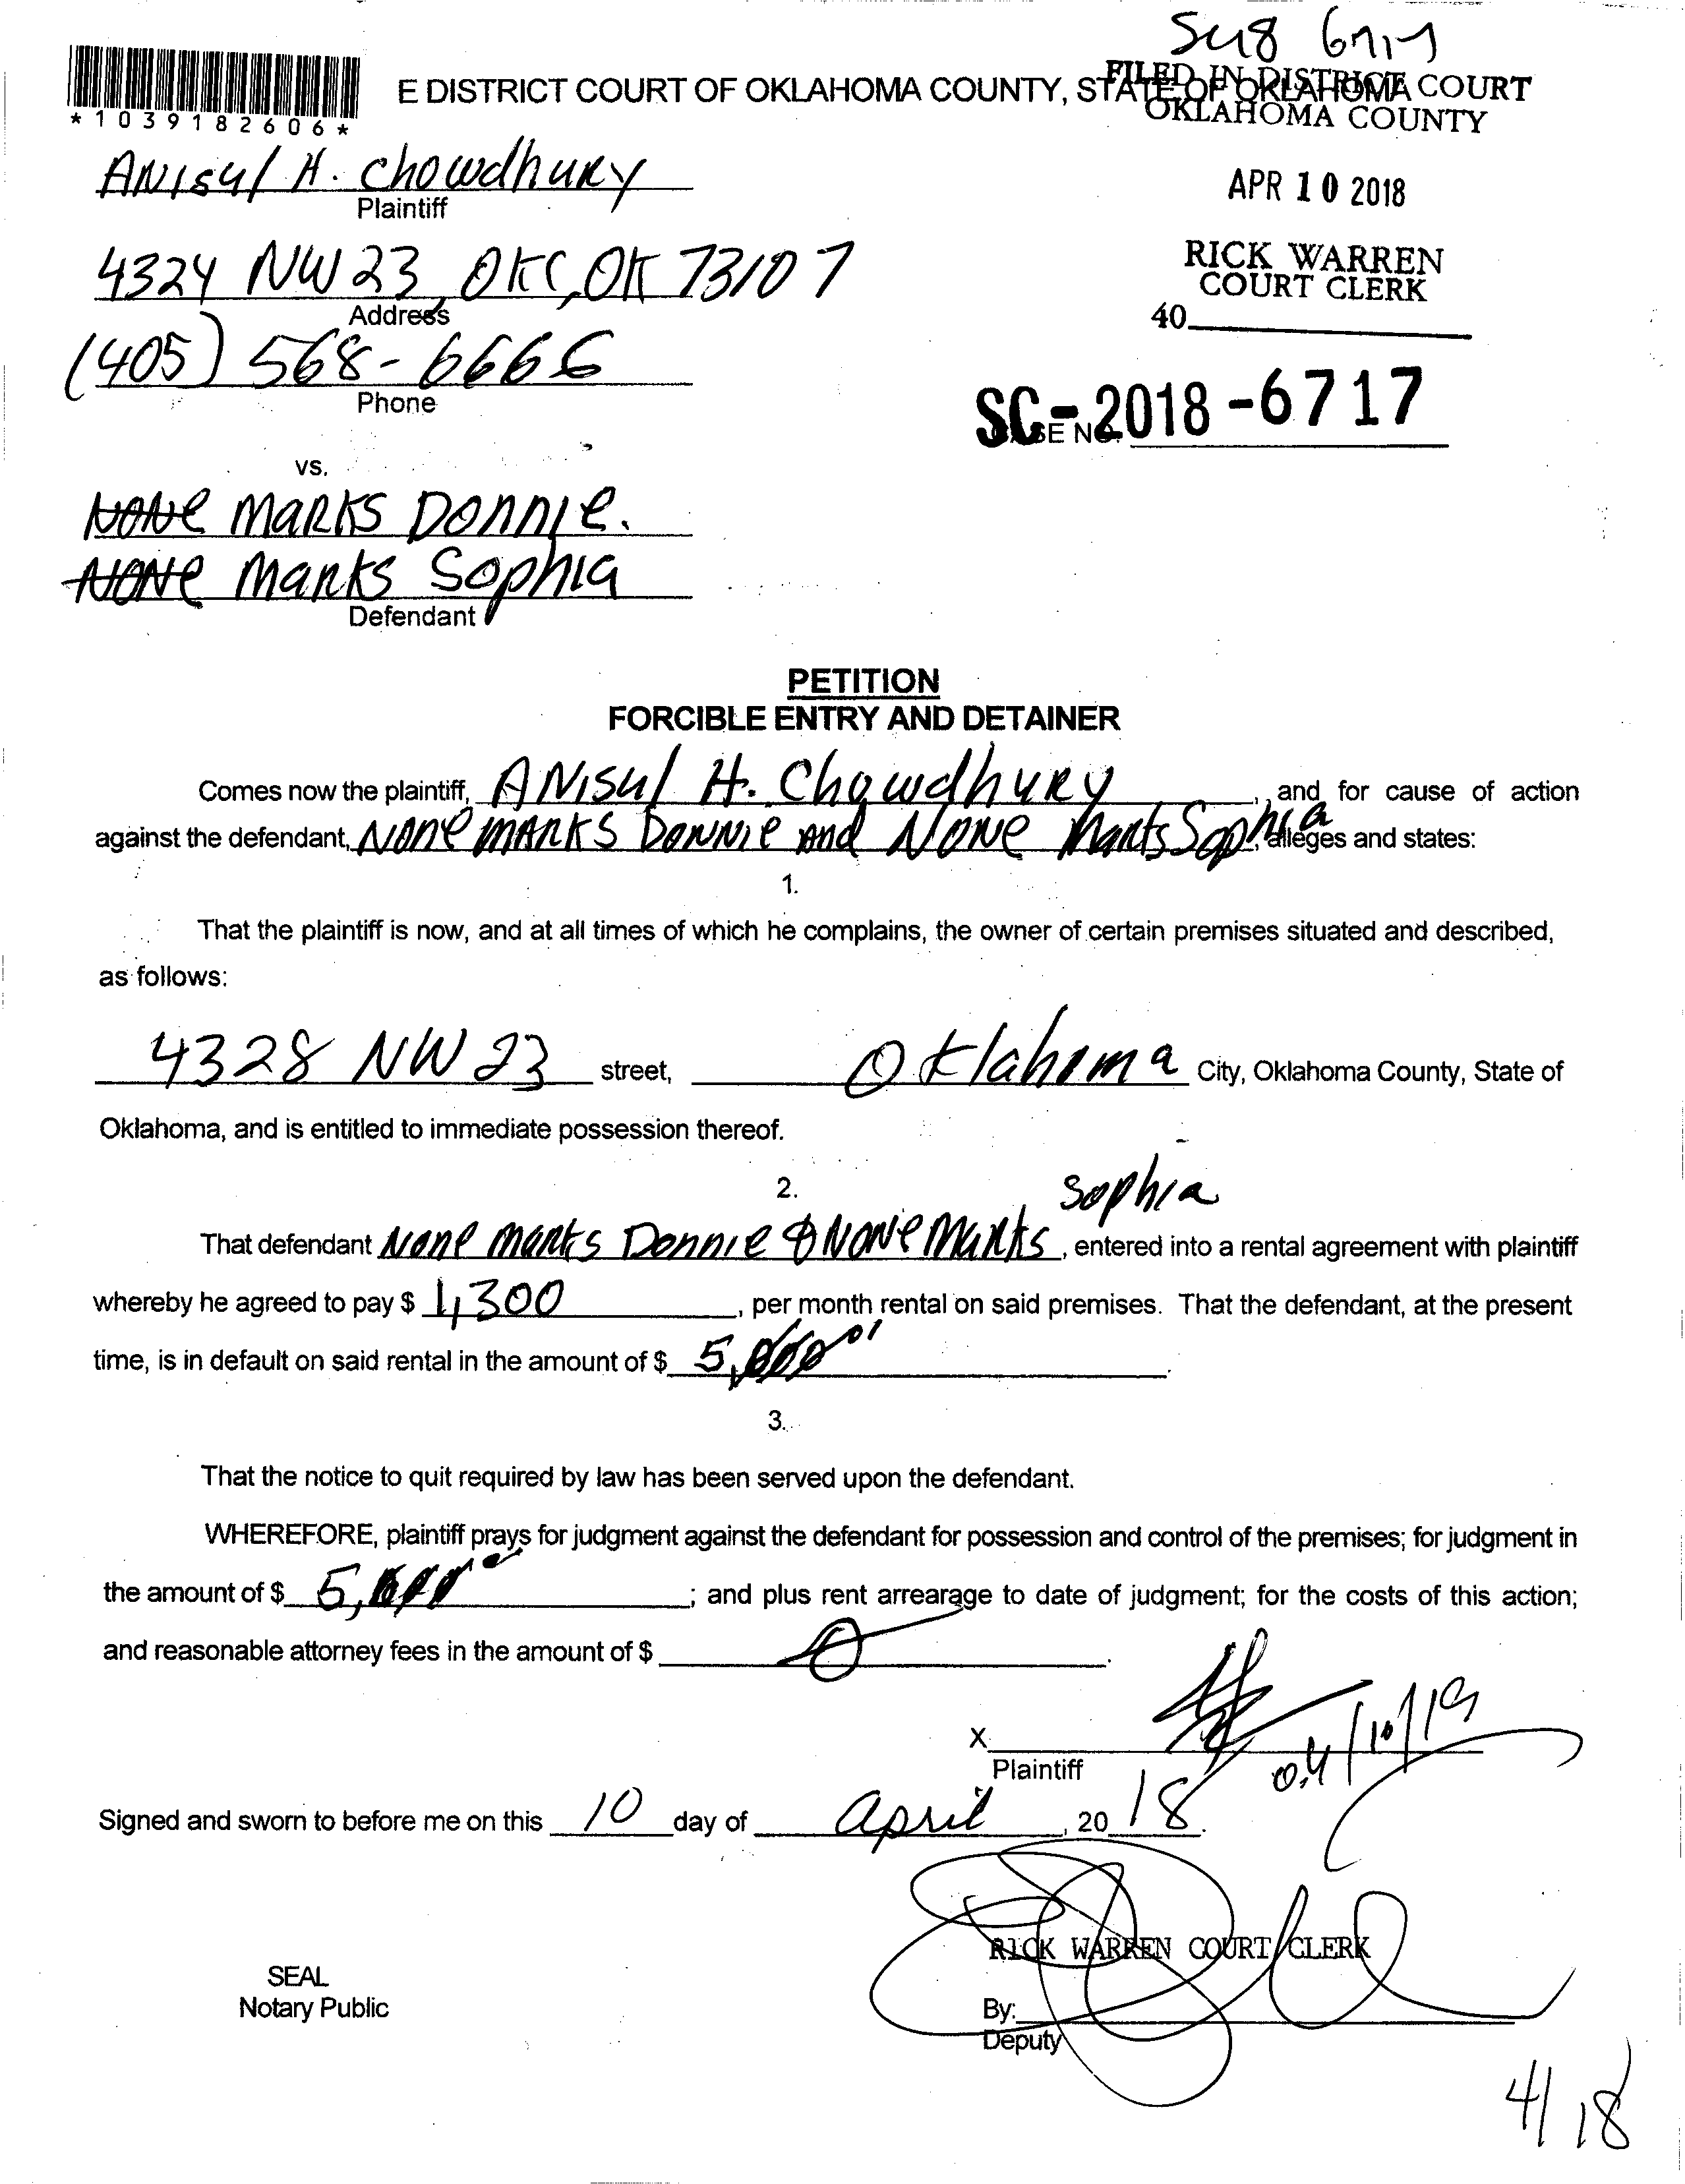 *1039182606*
E DISTRICT COURT OF OKLAHOMA COUNTY, STATE OF OKLAHOMA
FILED IN DISTRICT COURT
OKLAHOMA COUNTY
ANISUL H. ChowdhuRy
Plaintiff
APR 10 2018
4324 NW 23, OKC, OK 73107
Address
RICK WARREN
COURT CLERK
40
(405) 568-6666
Phone
SC-2018-6717
CASE NO.
vs.
NONe MaRKS DoNNIe.
NONe Marks Sophia
Defendant
PETITION
FORCIBLE ENTRY AND DETAINER
Comes now the plaintiff, ANISUL H. ChowdhuRy, and for cause of action
against the defendant, NoNe MARKS DoNNIe and NONe Marks Sophia, alleges and states:
1.
That the plaintiff is now, and at all times of which he complains, the owner of certain premises situated and described,
as follows:
4328 NW 23 street, Oklahoma City, Oklahoma County, State of
Oklahoma, and is entitled to immediate possession thereof.
2.
Sophia
That defendant None Marks Donnie & NONe Marks, entered into a rental agreement with plaintiff
whereby he agreed to pay $ 1,300, per month rental on said premises. That the defendant, at the present
time, is in default on said rental in the amount of $ 5,000.
3.
That the notice to quit required by law has been served upon the defendant.
WHEREFORE, plaintiff prays for judgment against the defendant for possession and control of the premises; for judgment in
the amount of $ 5,000; and plus rent arrearage to date of judgment; for the costs of this action;
and reasonable attorney fees in the amount of $ 0.
X 04/10/19
Plaintiff
Signed and sworn to before me on this 10 day of April, 2018.
RICK WARREN COURT CLERK
SEAL
Notary Public
By:
Deputy
4/18